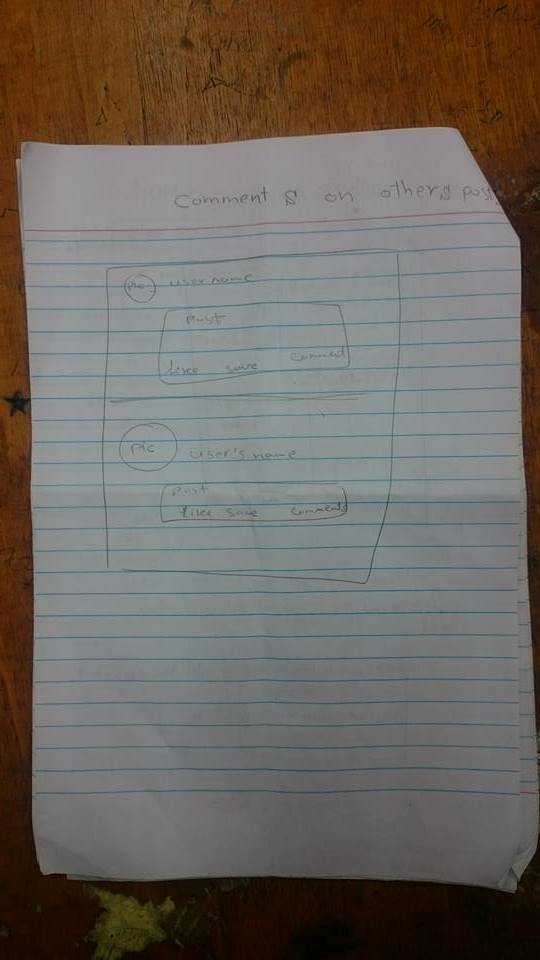 Comments on others post
pic username
Post
like save comment
pic user's name
Post
like save comments